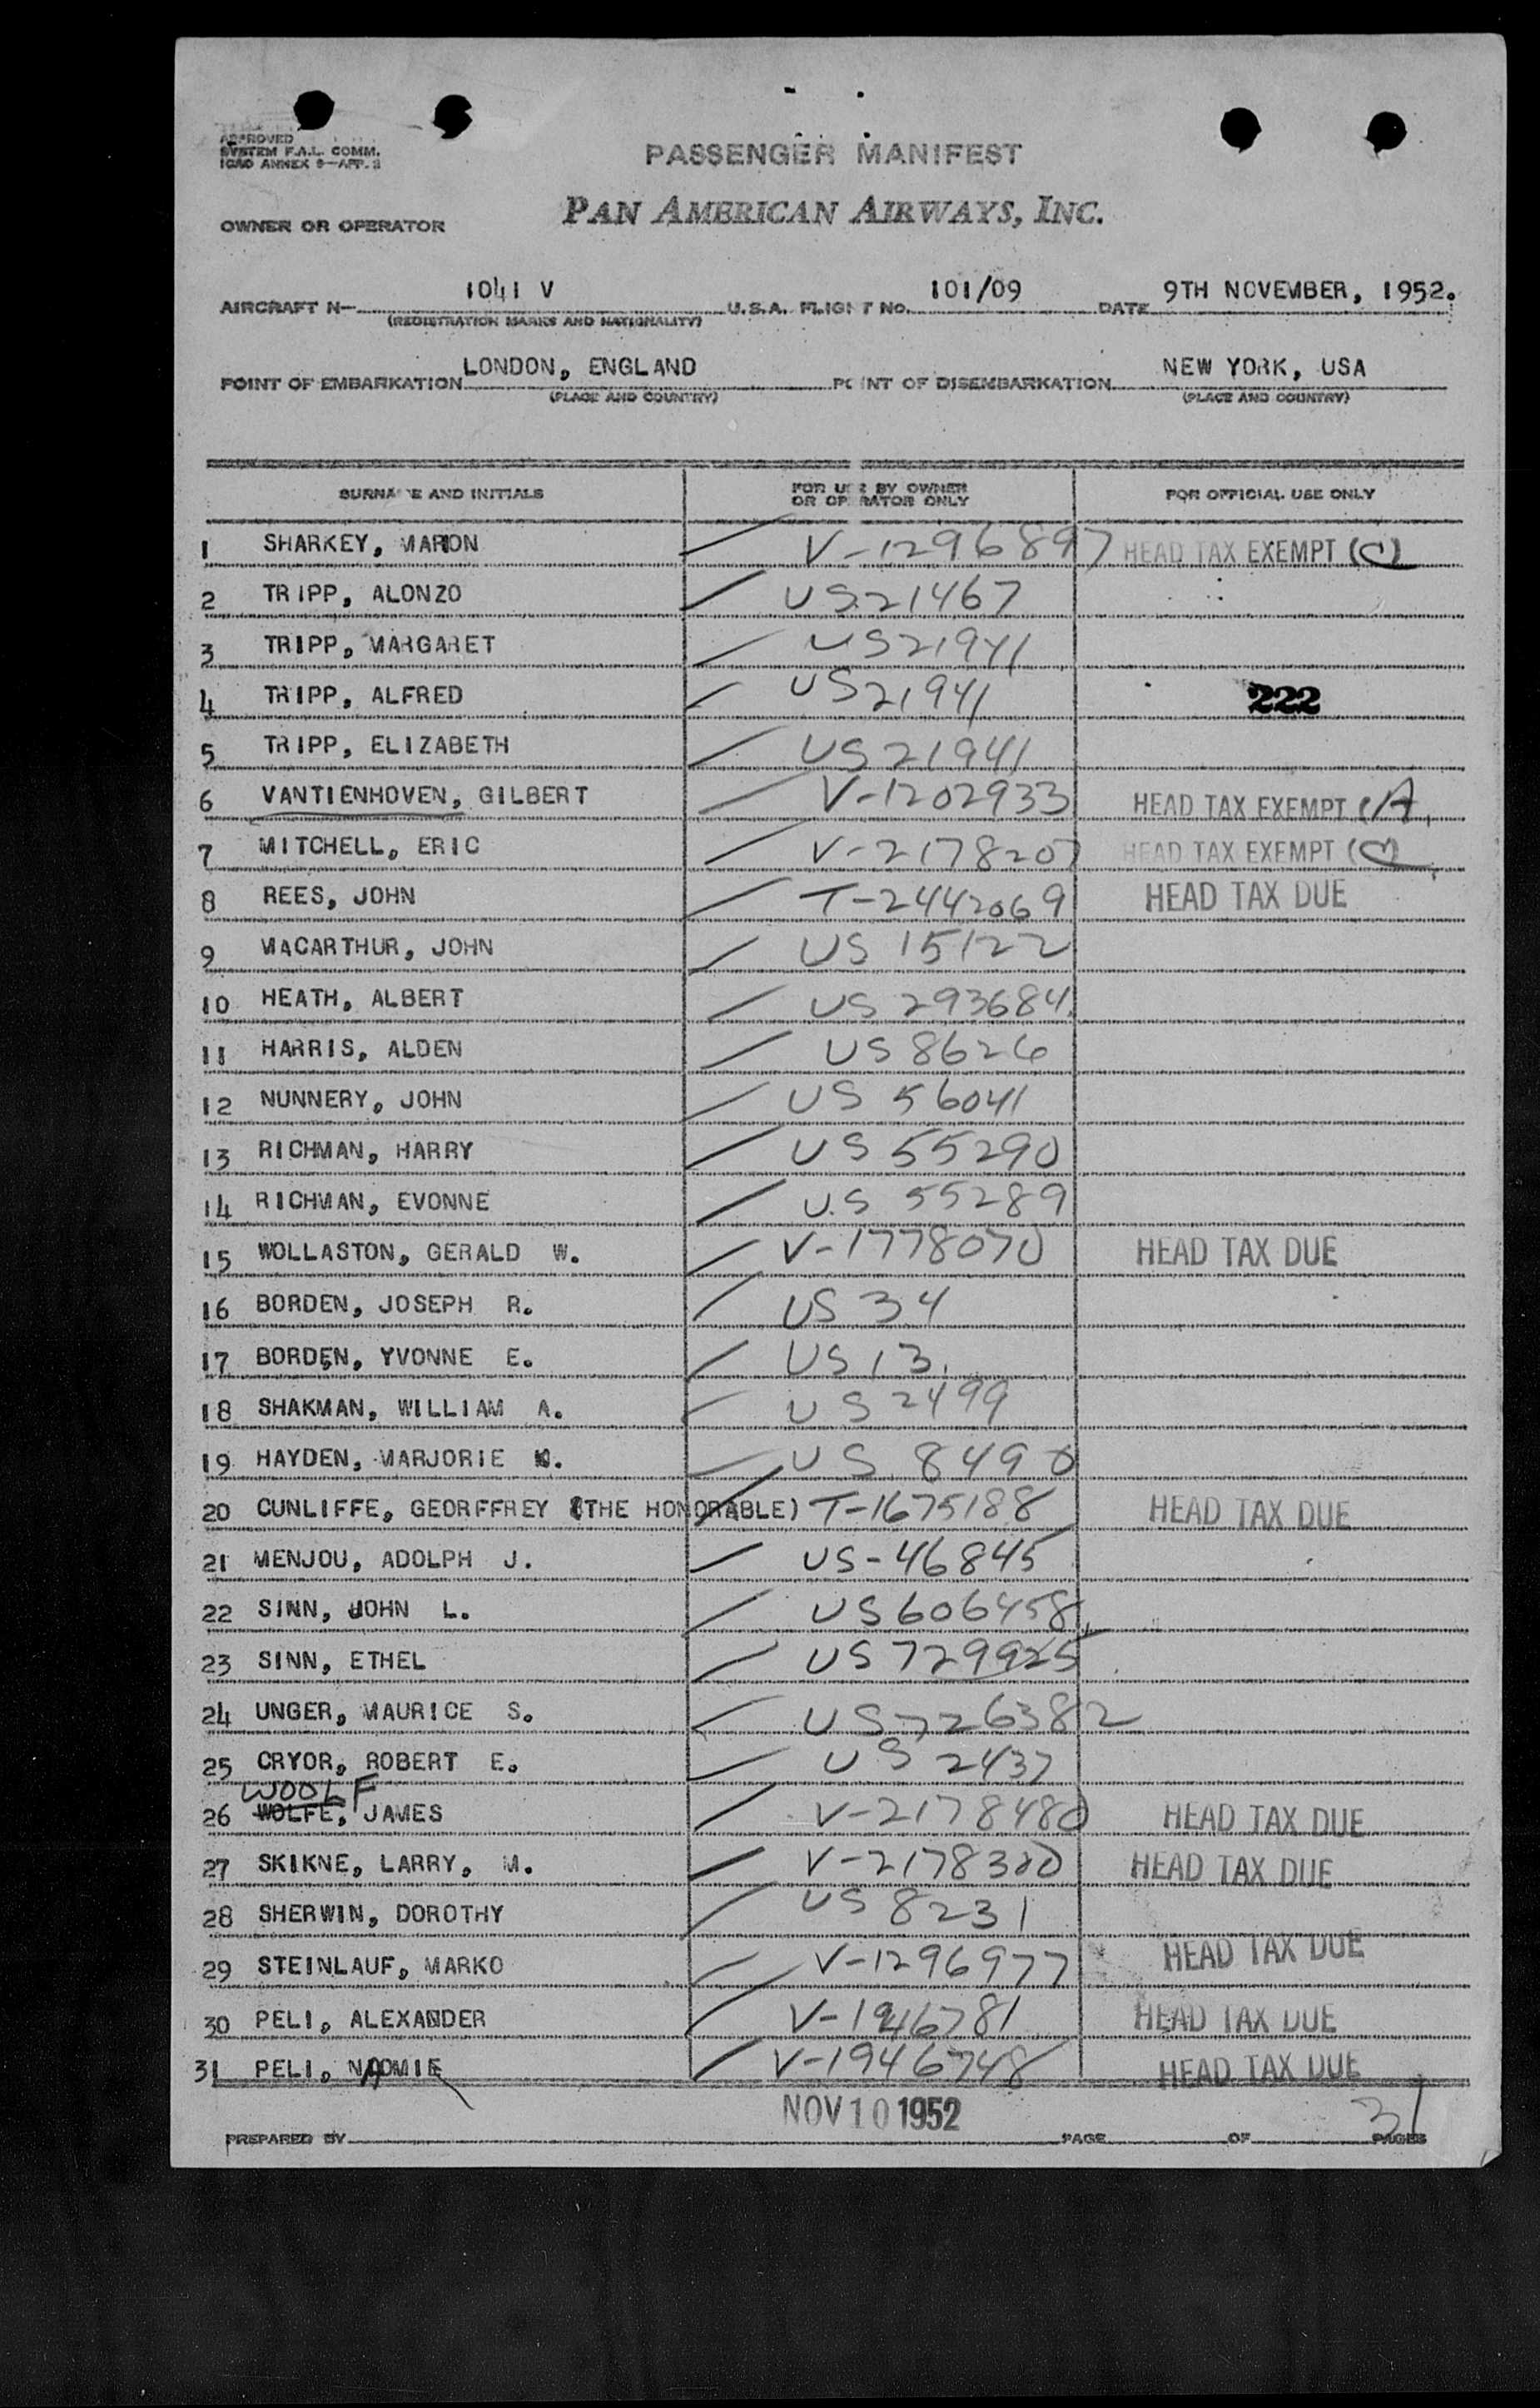 APPROVED
SYSTEM F.A.L. COMM.
ICAO ANNEX 9—APP. 3
PASSENGER MANIFEST
OWNER OR OPERATOR PAN AMERICAN AIRWAYS, INC.
AIRCRAFT N— 1041 V U.S.A. FLIGHT NO. 101/09 DATE 9TH NOVEMBER, 1952.
(REGISTRATION MARKS AND NATIONALITY)
POINT OF EMBARKATION LONDON, ENGLAND POINT OF DISEMBARKATION NEW YORK, USA
(PLACE AND COUNTRY) (PLACE AND COUNTRY)
SURNAME AND INITIALS FOR USE BY OWNER OR OPERATOR ONLY FOR OFFICIAL USE ONLY
1 SHARKEY, MARION V-1296897 HEAD TAX EXEMPT (C)
2 TRIPP, ALONZO US 21467
3 TRIPP, MARGARET US 21941
4 TRIPP, ALFRED US 21941 222
5 TRIPP, ELIZABETH US 21941
6 VANTIENHOVEN, GILBERT V-1202933 HEAD TAX EXEMPT (A
7 MITCHELL, ERIC V-2178207 HEAD TAX EXEMPT (C)
8 REES, JOHN T-2442069 HEAD TAX DUE
9 MACARTHUR, JOHN US 15122
10 HEATH, ALBERT US 293684
11 HARRIS, ALDEN US 8626
12 NUNNERY, JOHN US 56041
13 RICHMAN, HARRY US 55290
14 RICHMAN, EVONNE U.S 55289
15 WOLLASTON, GERALD W. V-1778070 HEAD TAX DUE
16 BORDEN, JOSEPH R. US 34
17 BORDEN, YVONNE E. US 13
18 SHAKMAN, WILLIAM A. US 2499
19 HAYDEN, MARJORIE US 8490
20 CUNLIFFE, GEORFFREY (THE HONORABLE) T-1675188 HEAD TAX DUE
21 MENJOU, ADOLPH J. US-46845
22 SINN, JOHN L. US 606458
23 SINN, ETHEL US 729925
24 UNGER, MAURICE S. US 726382
25 CRYOR, ROBERT E. US 2437
WOOLF
26 WOLFE, JAMES V-2178480 HEAD TAX DUE
27 SKIKNE, LARRY, M. V-2178300 HEAD TAX DUE
28 SHERWIN, DOROTHY US 8231
29 STEINLAUF, MARKO V-1296977 HEAD TAX DUE
30 PELI, ALEXANDER V-1946781 HEAD TAX DUE
31 PELI, NAOMIE V-1946748 HEAD TAX DUE
NOV 10 1952 31
PREPARED BY PAGE OF PAGES